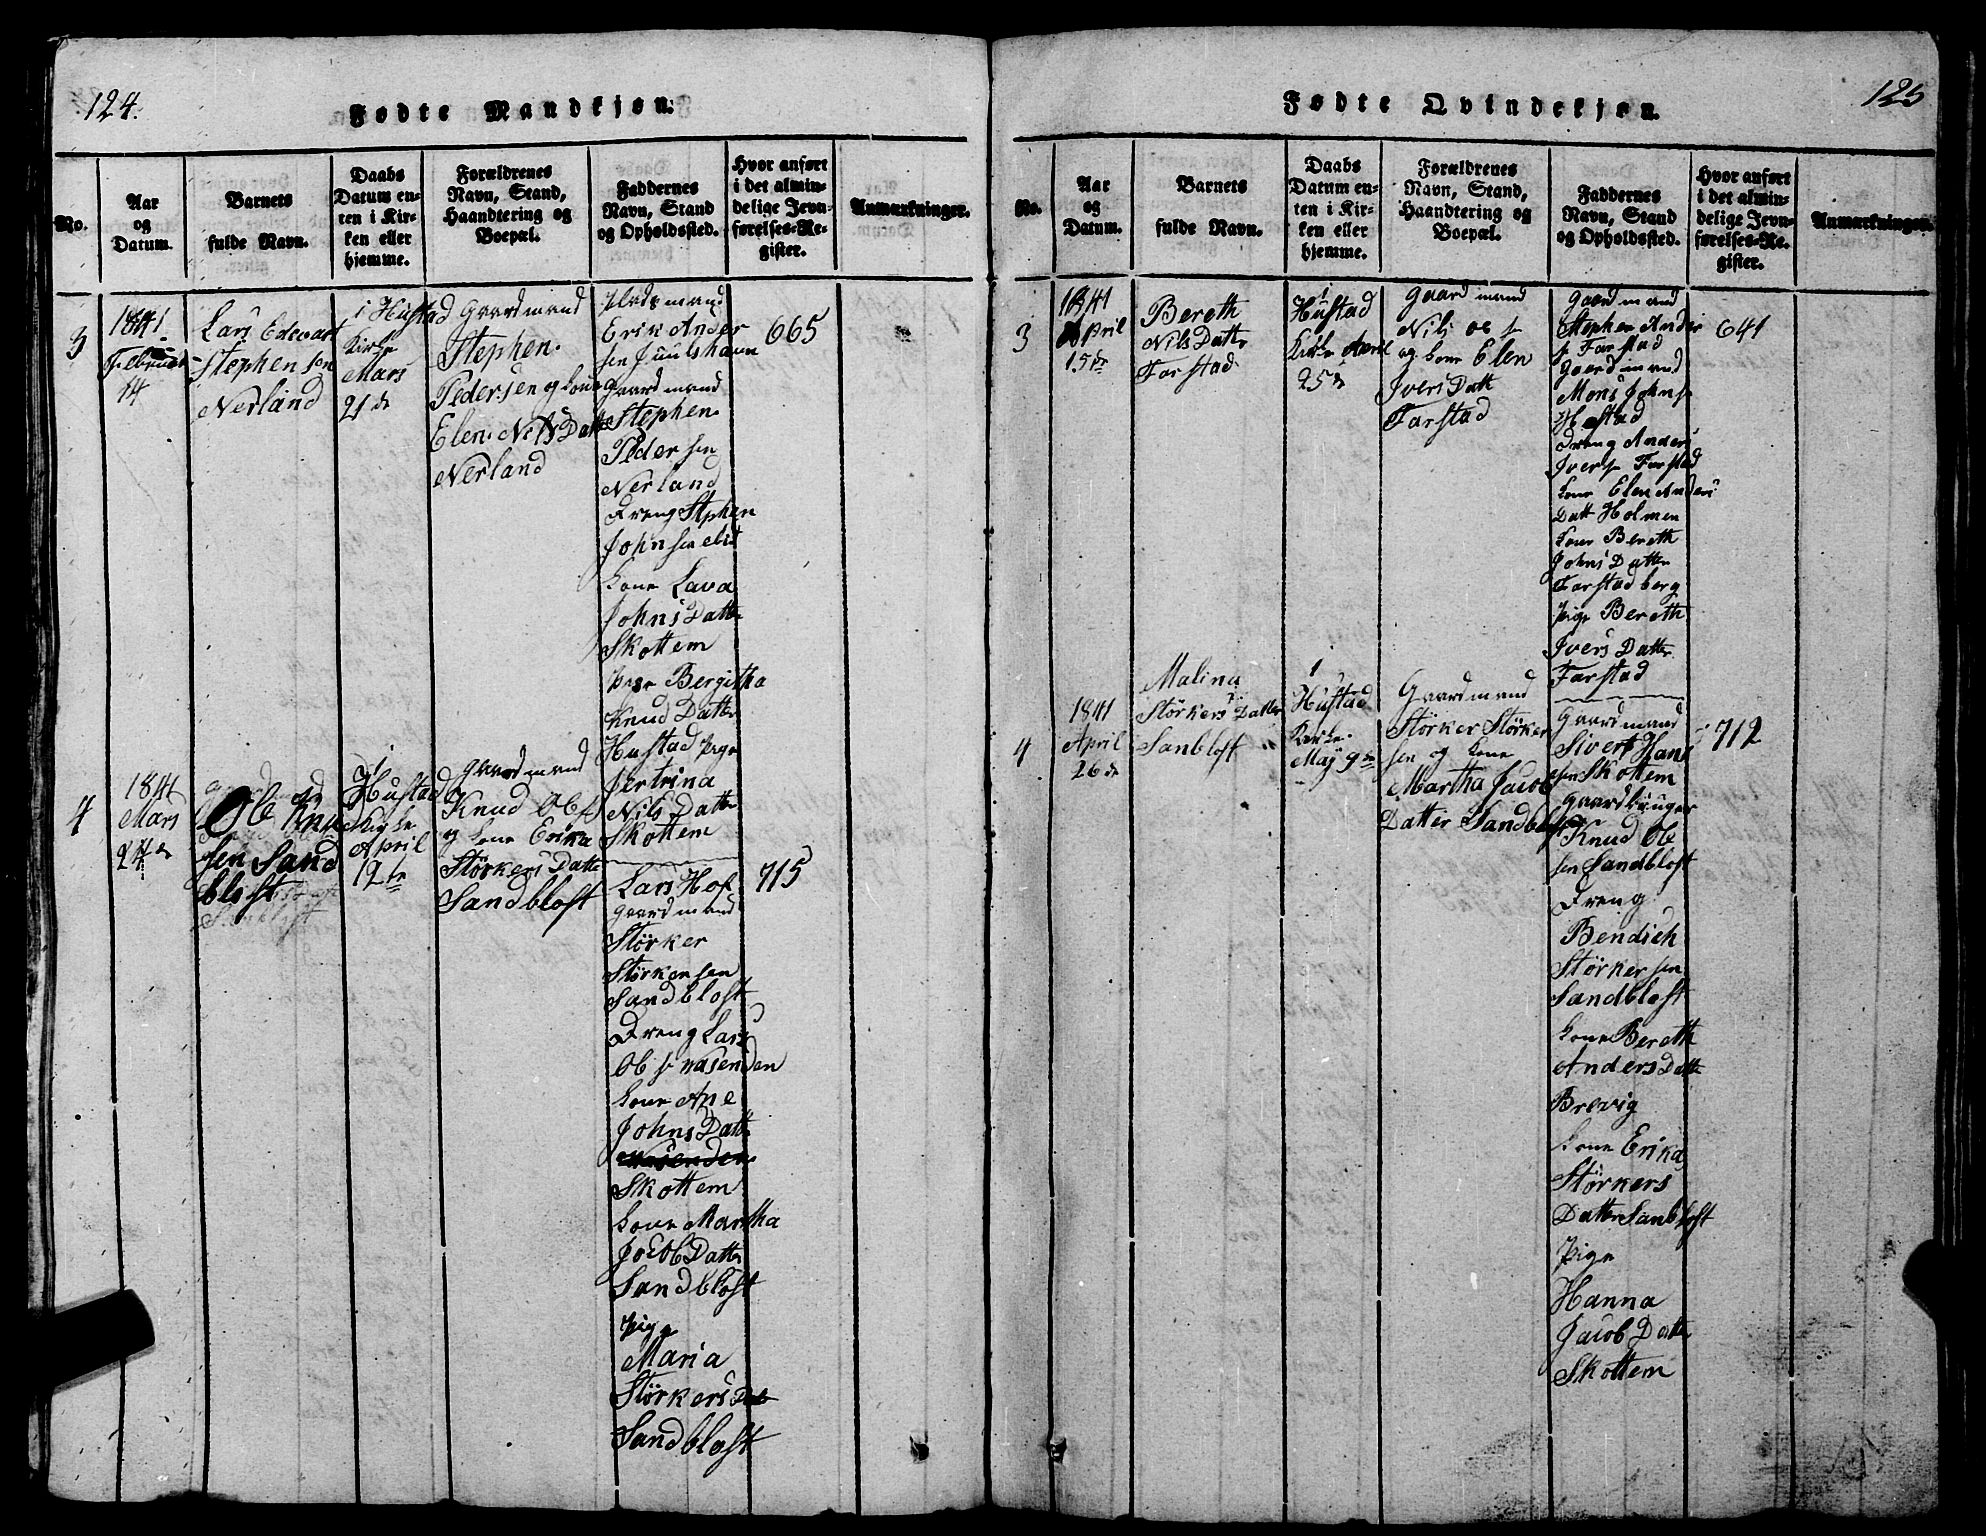 124.
Fødte Mandkjøn.
No.
Aar
og
Datum.
Barnets
fulde Navn.
Daabs
Datum en-
ten i Kir-
ken eller
hjemme.
Forældrenes
Navn, Stand,
Haandtering og
Boepæl.
Faddernes
Navn, Stand
og Opholdssted.
Hvor anført
i det almin-
delige Jevn-
førelses-Re-
gister.
Anmærkninger.
3
1841
Februar
14
Lars Edevart
Stephensen
Nerland
i Hustad
Kirke
Mars
21 de
Gaardmand
Stephen
Pedersen og Kone
Elen Nils Datte
Nerland
Pladsmand
Erik Ander
sen Juulshavn
Gaardmand
Stephen
Peder sen
Nerland
Dreng Stphen
John sen
Kone Lava
Johns Datte
Skottem
Pige Bergitha
Knud Datte
Hustad Pige
Jertrina
Nils Datte
Skottem
665
4
1841
Mars
24 de
Ole Knud
sen Sand
blost
i
Hustad
Kirke
April
12 te
Gaardmand
Knud Ols
og Kone Erika
Størkers Datte
Sandblost
Lars Hof
Gaardmand
Størker
Størkersen
Sandblost
Dreng Lars
Ols Nasenden
Kone Ane
Johns Datte
Skottem
Kone Martha
Jacob Datte
Sandblost
Pige
Maria
Størkers Dat
Sandblost
715
125
Fødte Qvindekjøn.
No.
Aar
og
Datum.
Barnets
fulde Navn.
Daabs
Datum en-
ten i Kir-
ken eller
hjemme.
Forældrenes
Navn, Stand,
Haandtering og
Boepæl.
Faddernes
Navn, Stand
og Opholdssted.
Hvor anført
i det almin-
delige Jevn-
førelses-Re-
gister.
Anmærkninger.
3
1841
April
15 de
Bereth
Nils Datte
Farstad
i
Hustad
Kirke April
25 de
Gaardmand
Nils
og Kone Elen
Ivers Datt
Farstad
Gaardmand
Stephen Ander
s Farstad
Gaardmand
Mons Johns
Hostad
Dreng Anders
Ivers Farstad
Kone Elen Anders
Datt Holmen
Kone Bereth
Johns Datte
Farstadberg
Pige Bereth
Ivers Datte
Farstad
641
4
1841
April
26 de
Malina
Størkers Datter
Sanblost
i
Hustad
Kirke
May 9 de
Gaardmand
Størker Størker
sen og Kone
Martha Jacob
Datter Sandblost
Gaardmand
Sivert Hans
sen Skottem
Gaardbruger
Knud Ole
sen Sandblost
Dreng
Bendich
Størker sen
Sandblost
Kone Bereth
Anders Datte
Brevig
Kone Erika
Størkers
Datter Sanblost
Pige
Hanna
Jacob Datte
Skottem
712